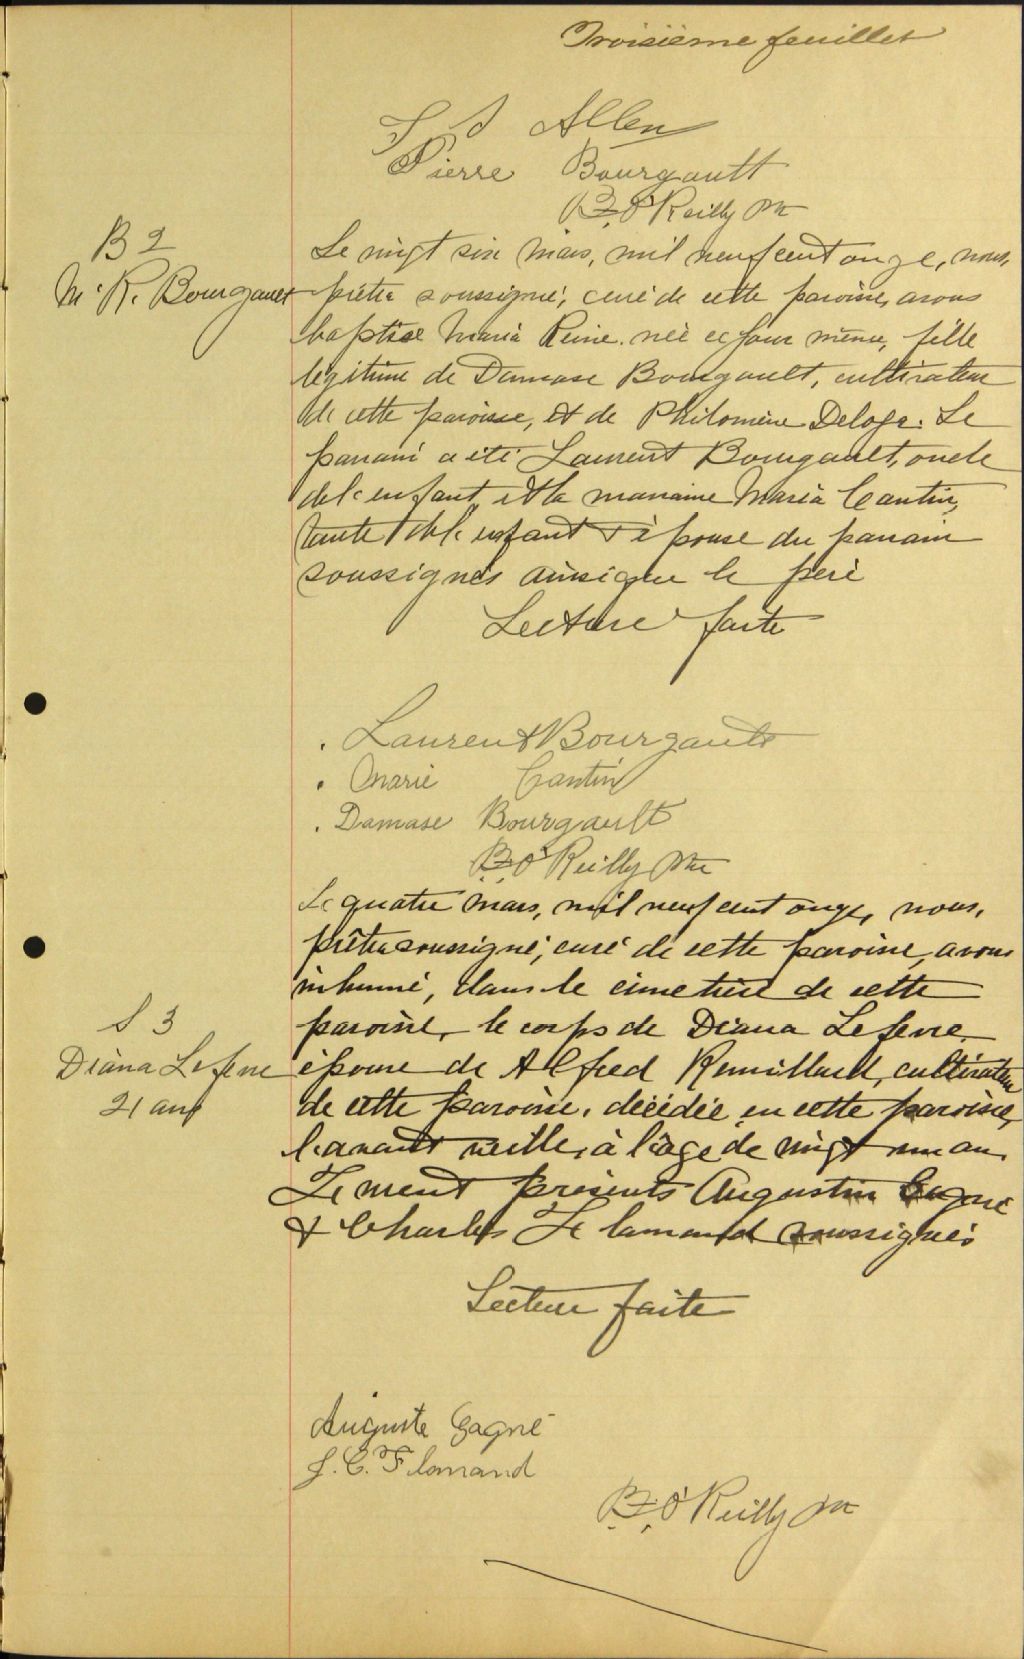 Troisième feuillet
Allen
Pierre Bourgault
B. O'Reilly Ptr
B 2
M. R. Bourgault
Le vingt six Mars, mil neuf cent onze, nous,
prêtre soussigné, curé de cette paroisse, avons
baptisé Maria Reine née ce jour même, fille
legitime de Damase Bourgault, cultivateur
de cette paroisse, et de Philomène Deloge. Le
parrain a été Laurent Bourgault, oncle
de l'enfant et la marraine Maria Cantin,
tante de l'enfant & épouse du parrain
soussignés ainsi que le père
Lecture faite
Laurent Bourgault
Marie Cantin
Damase Bourgault
B. O'Reilly Ptr
S 3
Diana Lefevre
21 ans
Le quatre Mars, mil neuf cent onze, nous,
prêtre soussigné, curé de cette paroisse, avons
inhumé, dans le cimetière de cette
paroisse, le corps de Diana Lefevre
épouse de Alfred Remillard, cultivateur
de cette paroisse, décédée en cette paroisse,
l'avant veille, à l'âge de vingt un an.
Furent présents Augustin Gagné
& Charles Flamand soussignés
Lecture faite
Auguste Gagné
J. C. Flamand
B. O'Reilly Ptr